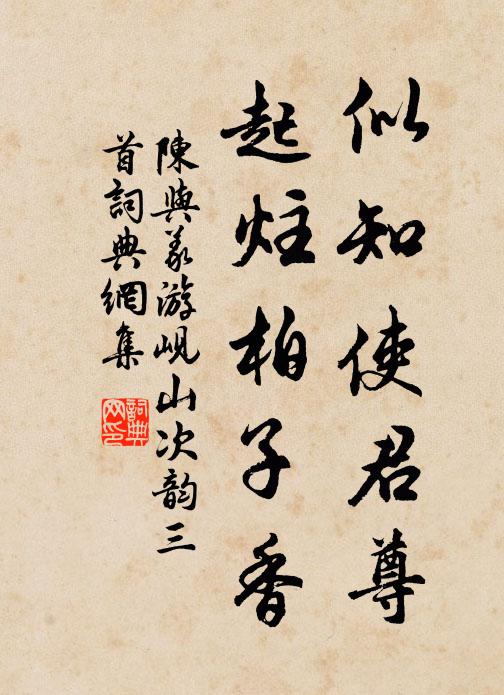 似知使君尊
起炷柏子香
陳與義游峴山次韵三
首詞典網集
詞典网印